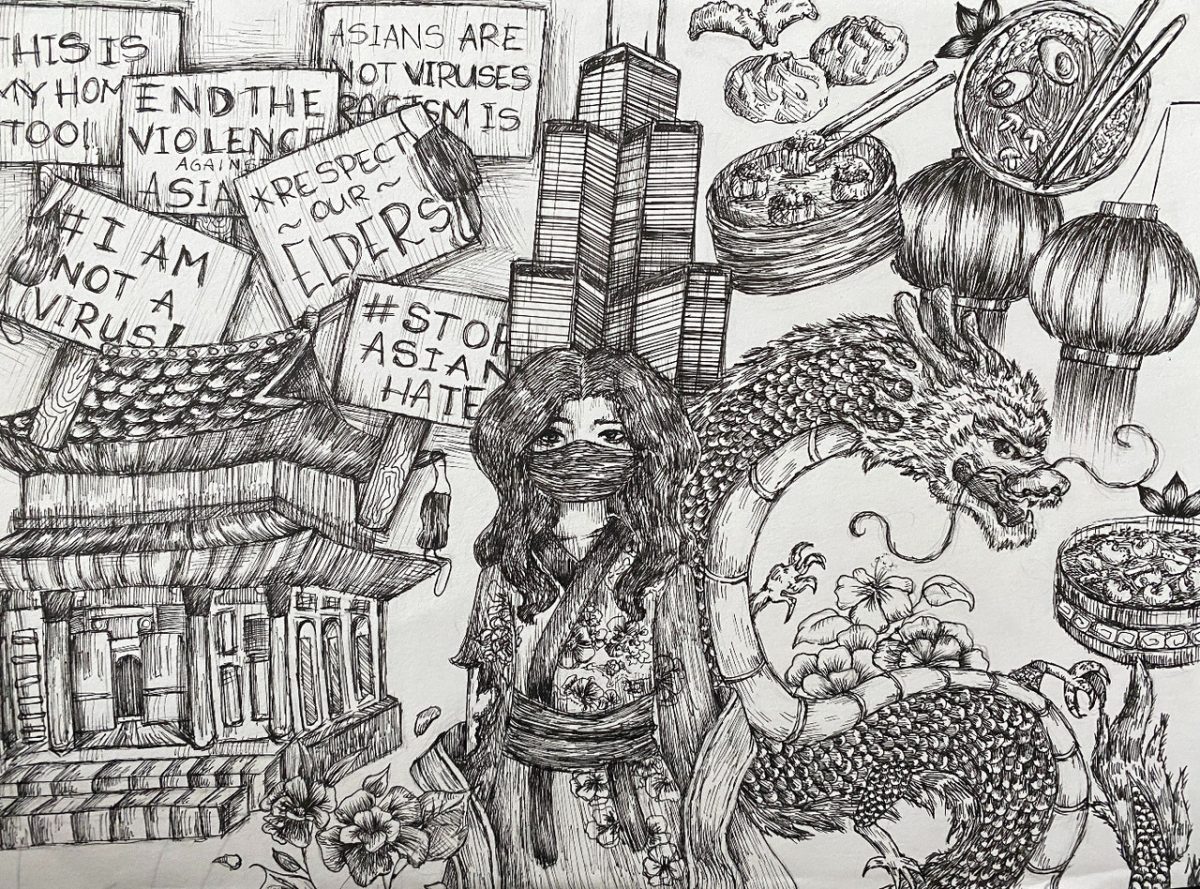 THIS IS
MY HOM
TOO!!
END THE
VIOLENCE
AGAINS
ASIA
ASIANS ARE
NOT VIRUSES
RACISM IS
*RESPECT
~ OUR ~
ELDERS
#I AM
NOT A
VIRUS!
#STOP
ASIAN
HATE